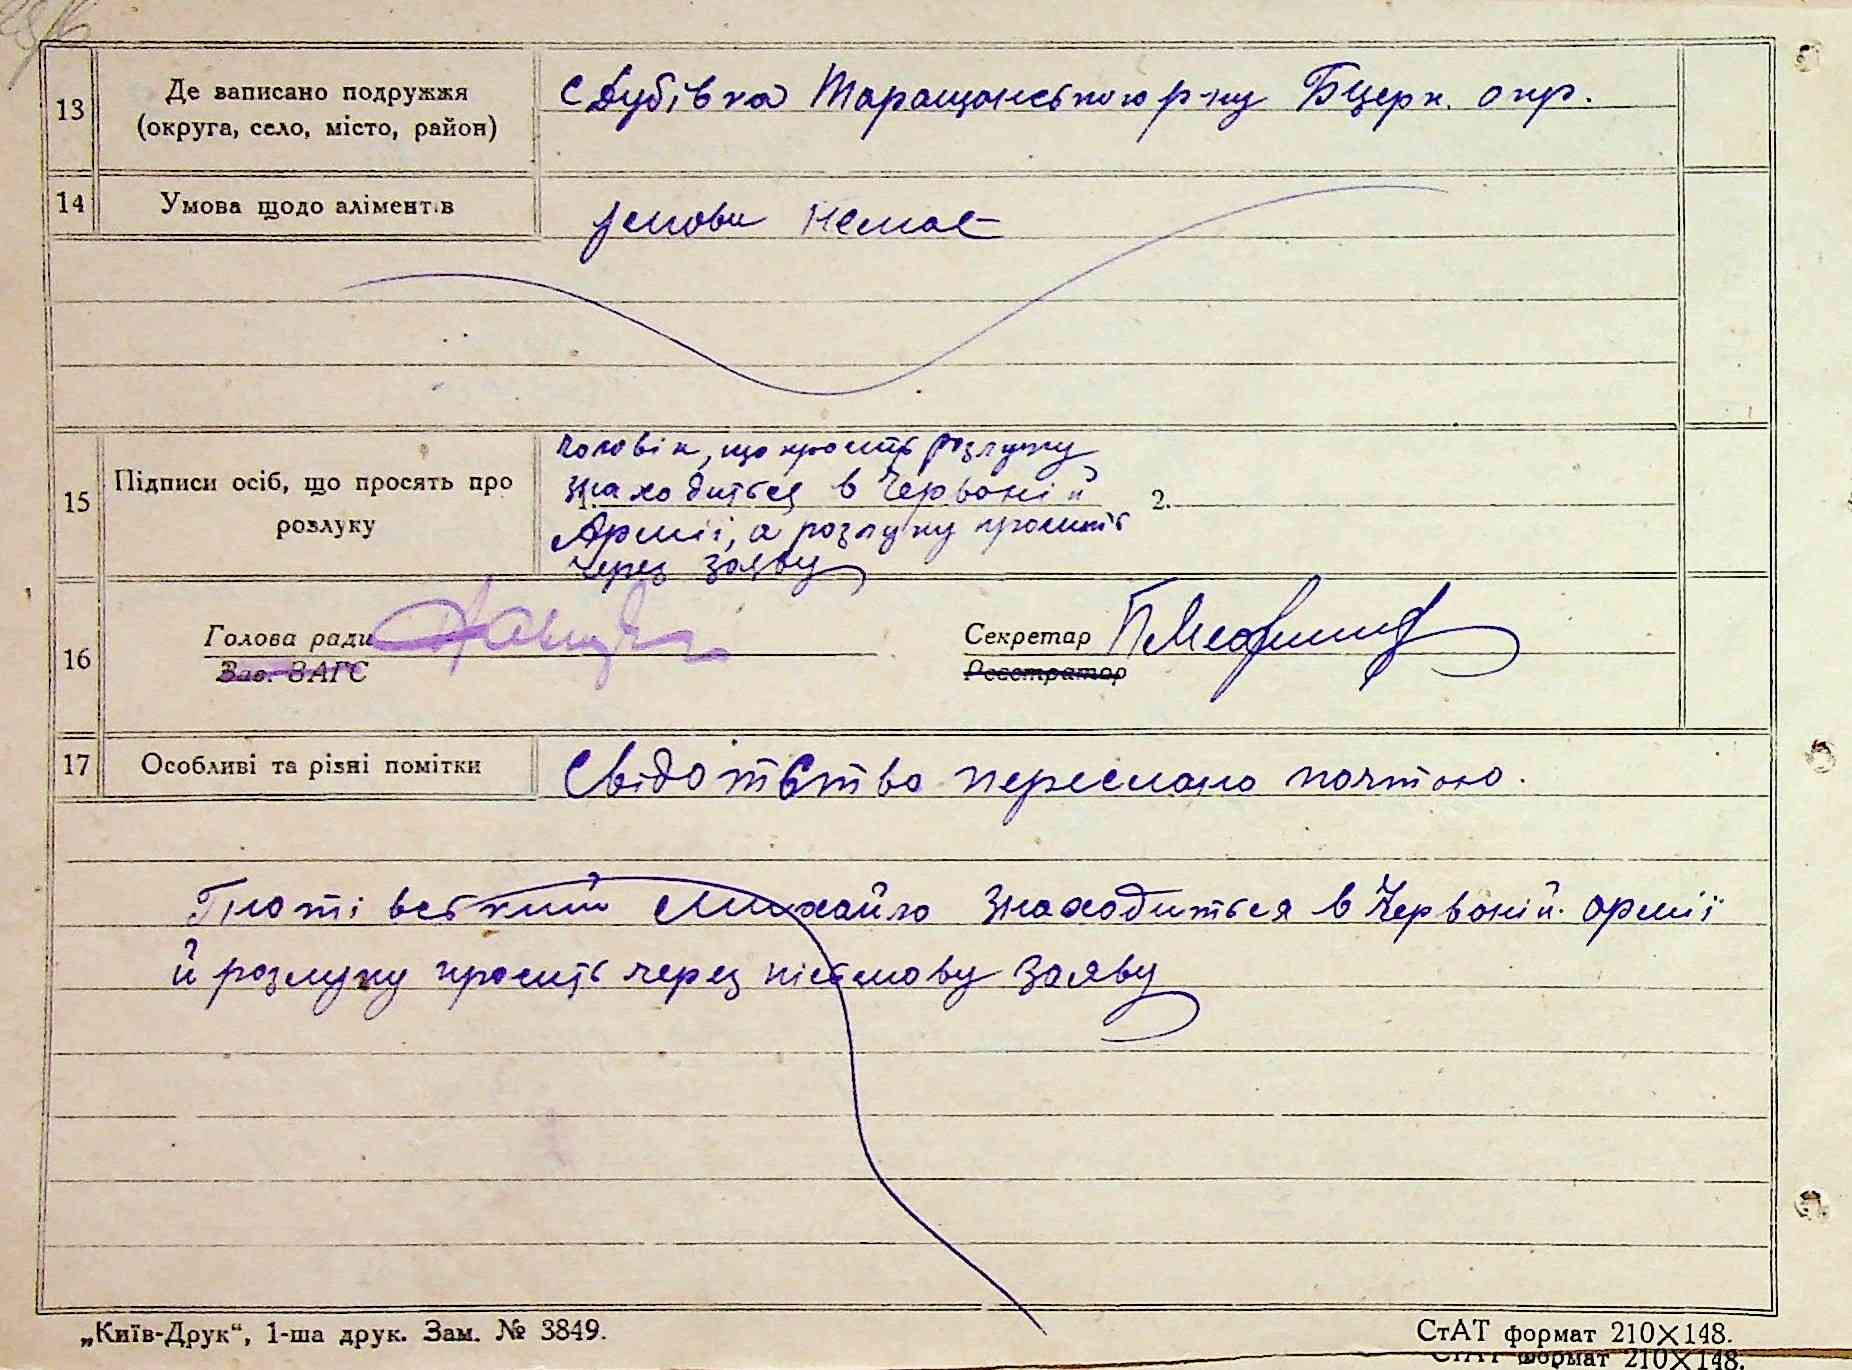 13
Де записано подружжя
(округа, село, місто, район)
с Дубівка Таращанського р-ну Бцерк. окр.
14
Умова щодо аліментів
умови немає
15
Підписи осіб, що просять про
розлуку
чоловік, що просить розлуку
1. знаходиться в Червоній 2.
Армії, а розлуку просить
через заяву
16
Голова ради
Зав. ЗАГС
Секретар
Реєстратор
17
Особливі та різні помітки
Свідотство переслано почтою.
Михайло знаходиться в Червоній армії
й розлуку просить через пісьмову заяву
„Київ-Друк“, 1-ша друк. Зам. № 3849.
СтАТ формат 210×148.
СтАТ формат 210×148.